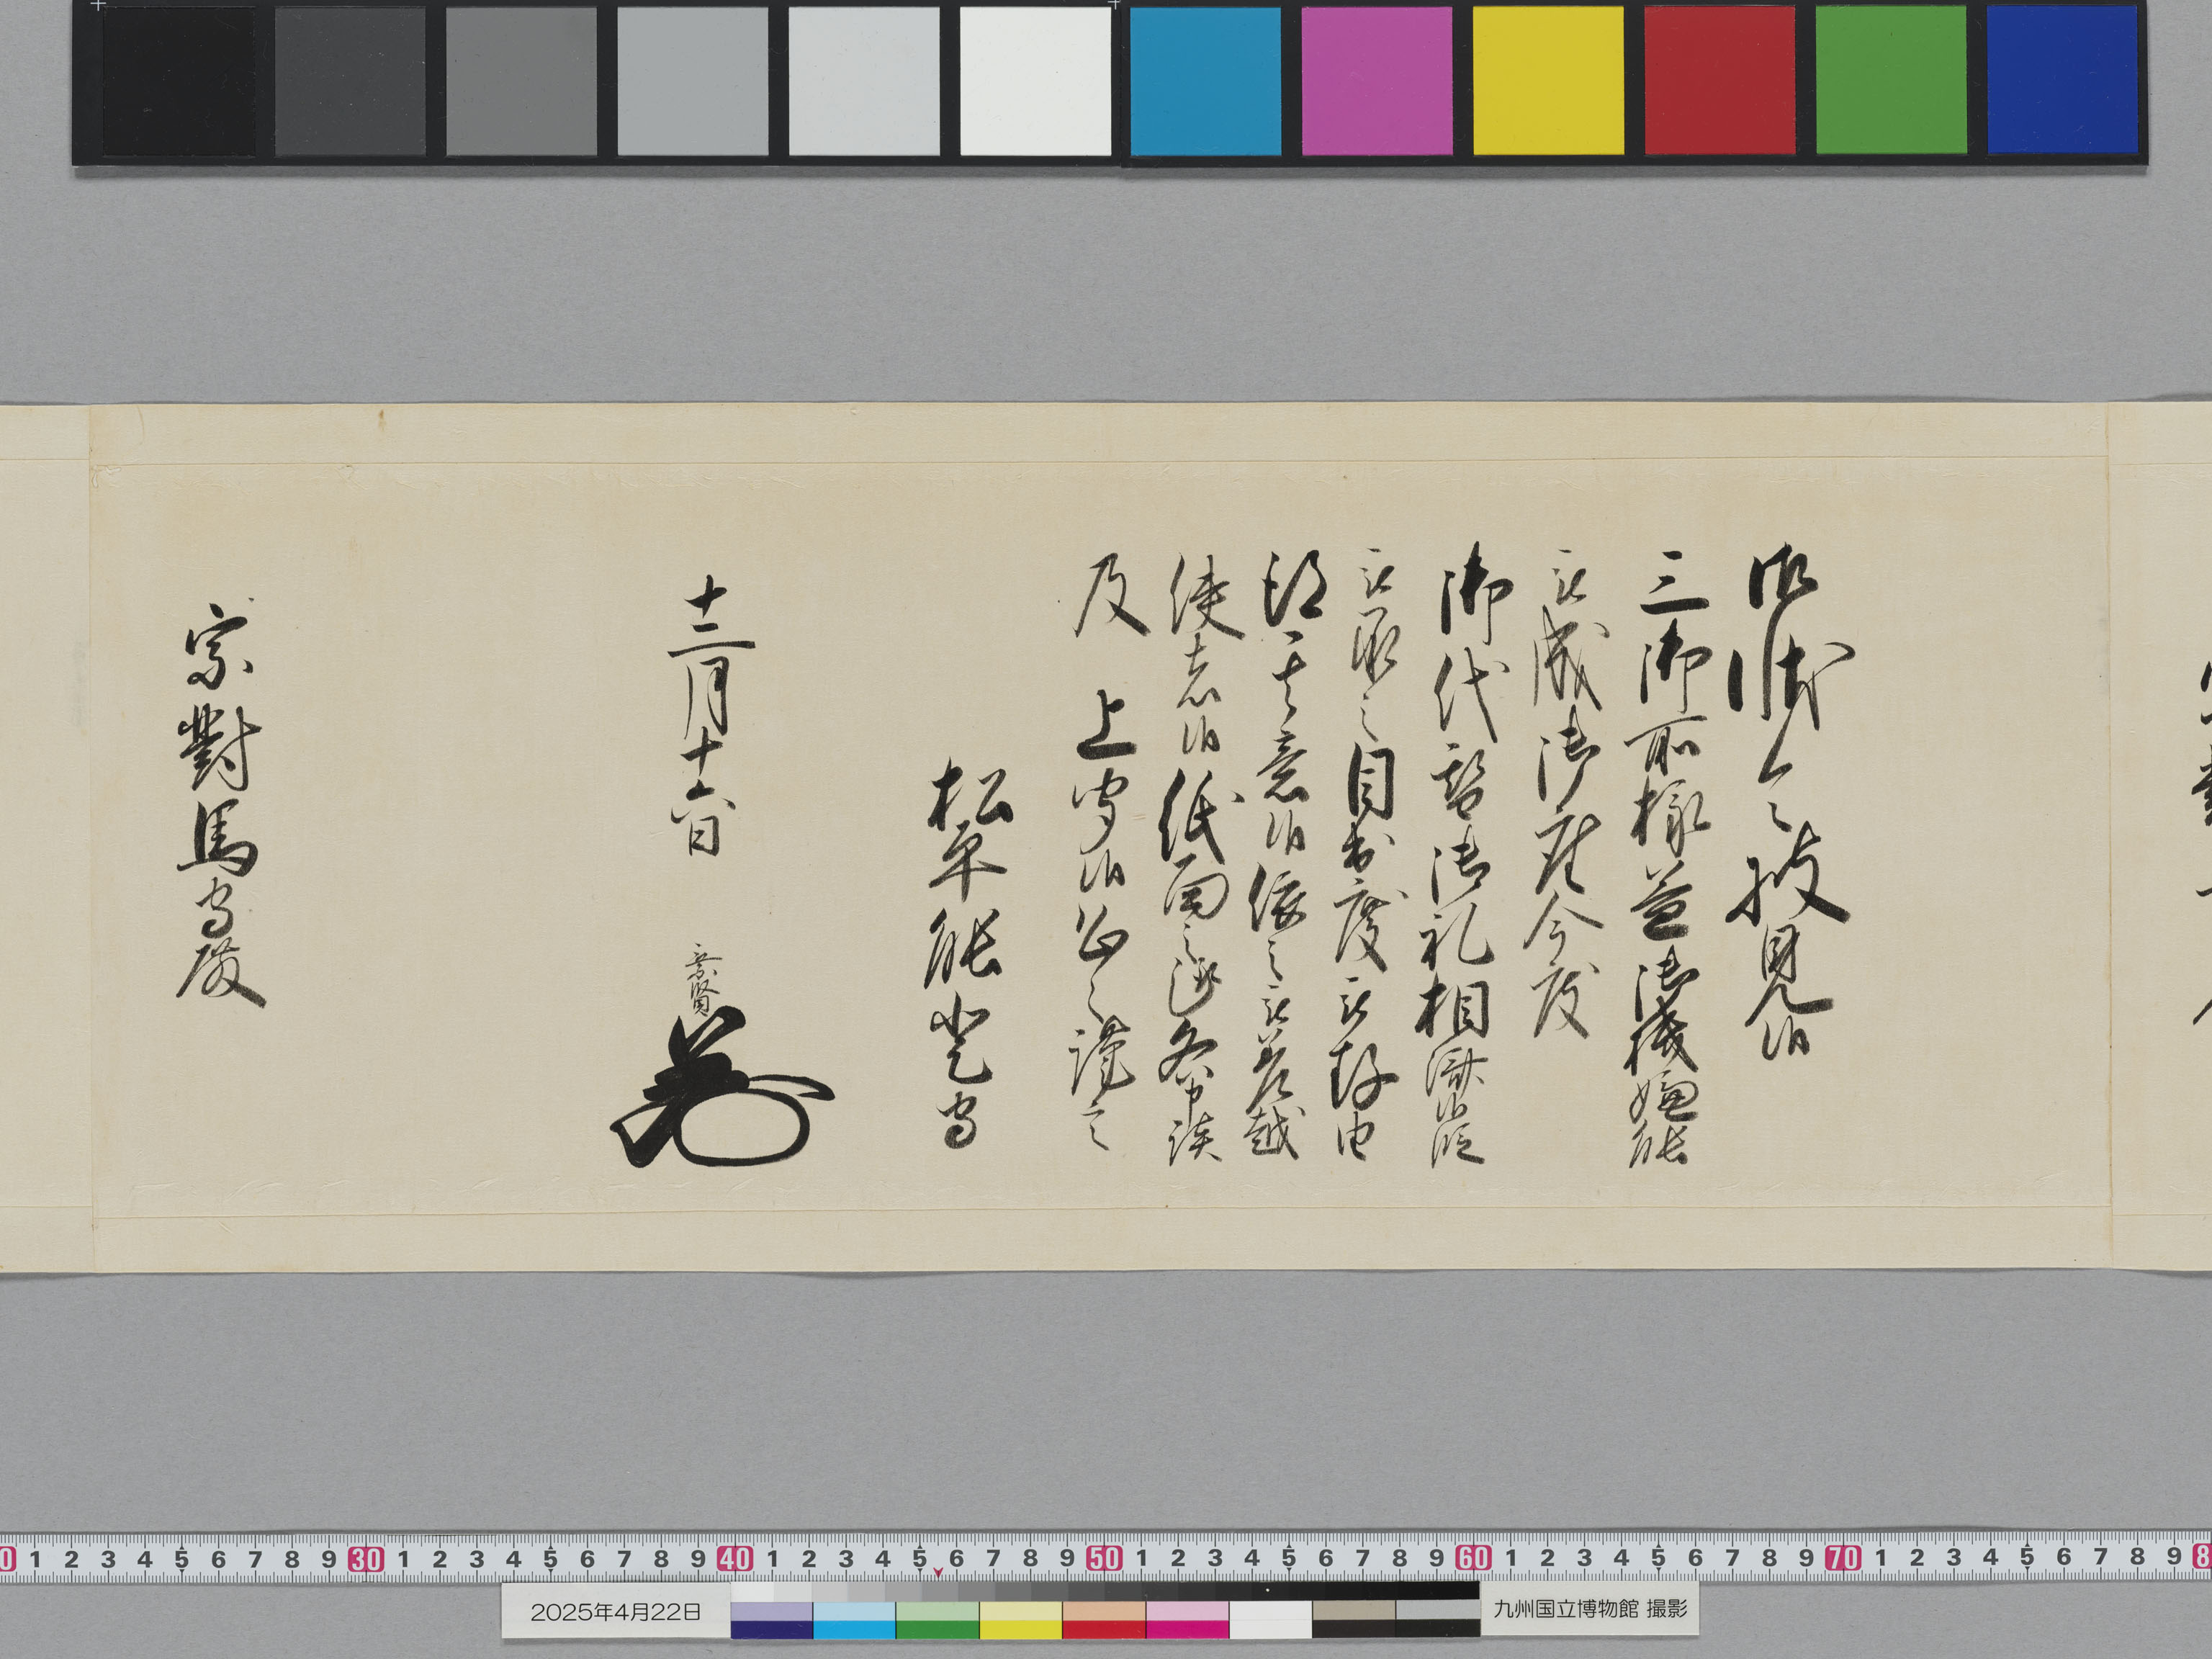 御状令披見候
三御所様益御機嫌能
被成御座今度
御代替御礼相濟候段
被承之目出度被存由
得其意候依之被差越
使者候紙面之趣各申談
及 上聞候恐々謹言
松平能登守
十二月十六日
乗賢
宗對馬守殿
0 1 2 3 4 5 6 7 8 9 30 1 2 3 4 5 6 7 8 9 40 1 2 3 4 5 6 7 8 9 50 1 2 3 4 5 6 7 8 9 60 1 2 3 4 5 6 7 8 9 70 1 2 3 4 5 6 7 8 9 8
2025年4月22日
九州国立博物館 撮影